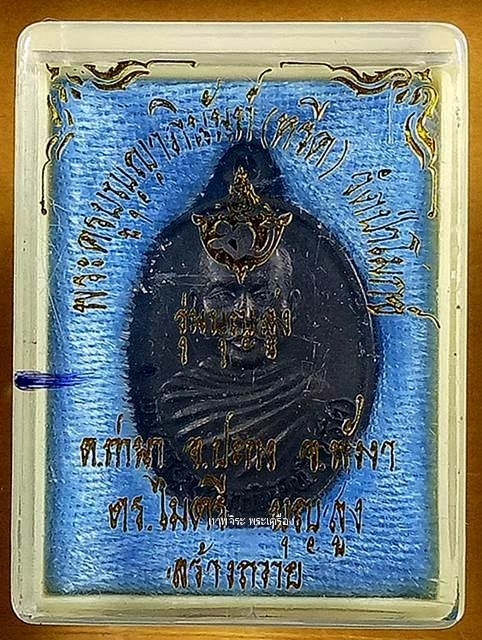 พระครูบุญญาภินันท์ (หรีด) วัดป่าโมกข์
รุ่นบุญสูง
ต.ท่านา อ.กะปง จ.พังงา
ดร.ไมตรี บุญสูง
เทพจิระ พระเครื่อง
สร้างถวาย